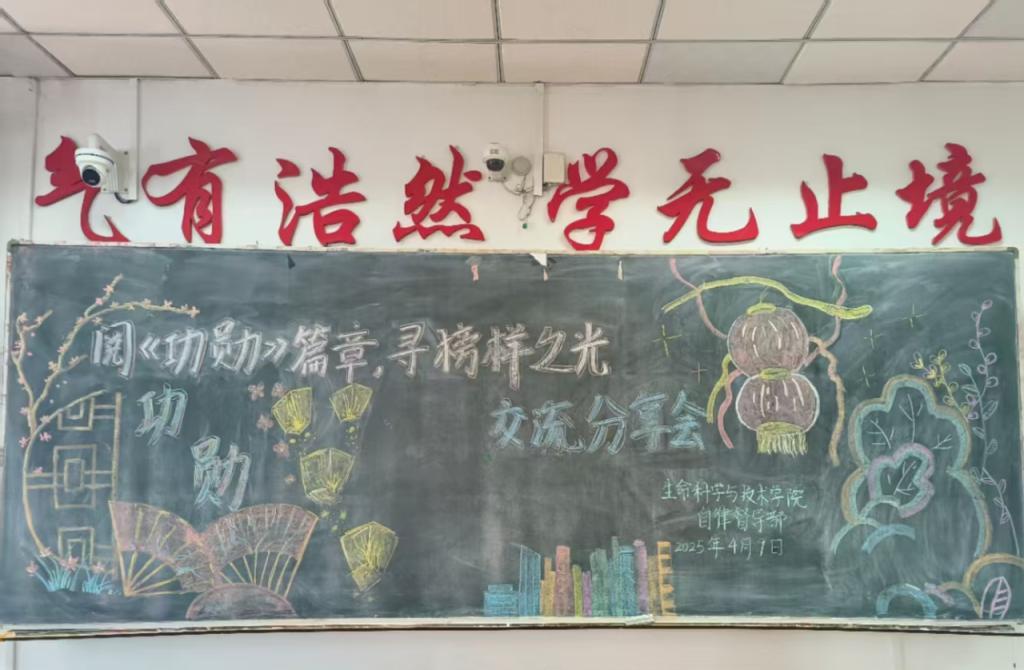 气有浩然 学无止境
阅《功勋》篇章,寻榜样之光
功勋
交流分享会
生命科学与技术学院
自律督导部
2025年4月9日